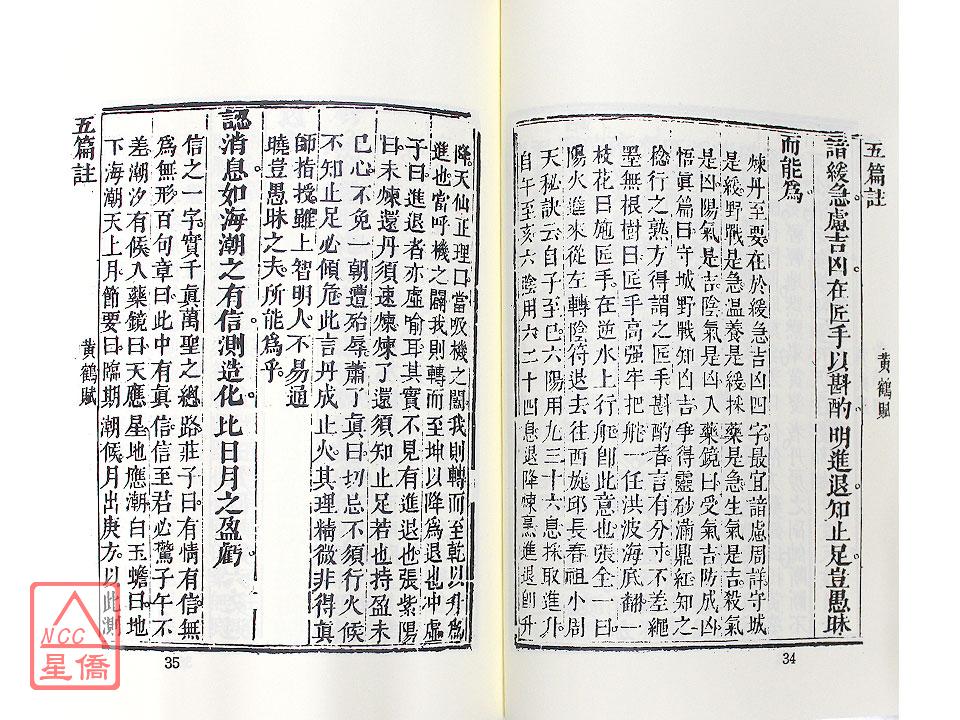 五篇註
黃鶴賦
諳緩急慮吉凶在匠手以斟酌明進退知止足豈愚昧
而能爲
煉丹至要在於緩急吉凶四字最宜諳慮周詳守城
是緩野戰是急溫養是緩採藥是急生氣是吉殺氣
是凶陽氣是吉陰氣是凶入藥鏡曰受氣吉防成凶
悟眞篇曰守城野戰知凶吉爭得靈砂滿鼎紅知之
稔行之熟方得謂之匠手斟酌者言有分寸不差繩
墨無根樹曰匠手高強牢把舵一任洪波海底翻一
枝花曰施匠手在逆水上行船卽此意也張全一曰
陽火進來從左轉陰符退去往西旋邱長春祖小周
天秘訣云自子至巳六陽用九三十六息採取進升
自午至亥六陰用六二十四息退降煉烹進退卽升
34
降天仙正理口當吸機之闔我則轉而至乾以升爲
進也當呼機之闢我則轉而至坤以降爲退也冲虛
子曰進退者亦虛喻耳其實不見有進退也張紫陽
曰未煉還丹須速煉煉了還須知止足若也持盈未
已心不免一朝遭殆辱蕭了眞曰切忌不須行火候
不知止足必傾危此言丹成止火其理精微非得眞
師指授雖上智明人不易通
曉豈愚昧之夫所能爲乎
認消息如海潮之有信測造化比日月之盈虧
信之一字實千眞萬聖之總路莊子曰有情有信無
爲無形百句章曰此中有眞信信至君必驚子午不
差潮汐有候入藥鏡曰天應星地應潮白玉蟾曰地
下海潮天上月節要曰臨期潮候月出庚方以此測
五篇註
黃鶴賦
35
NCC
星僑